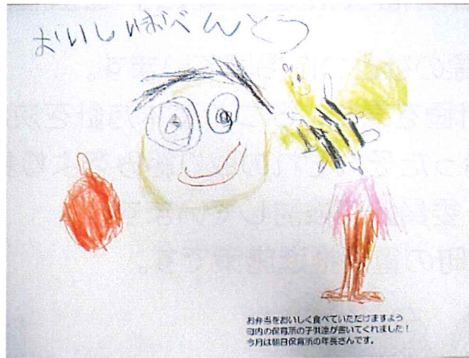 おいしいおべんとう
お弁当をおいしく食べていただけますよう
町内の保育所の子供達が書いてくれました！
今月は朝日保育所の年長さんです。